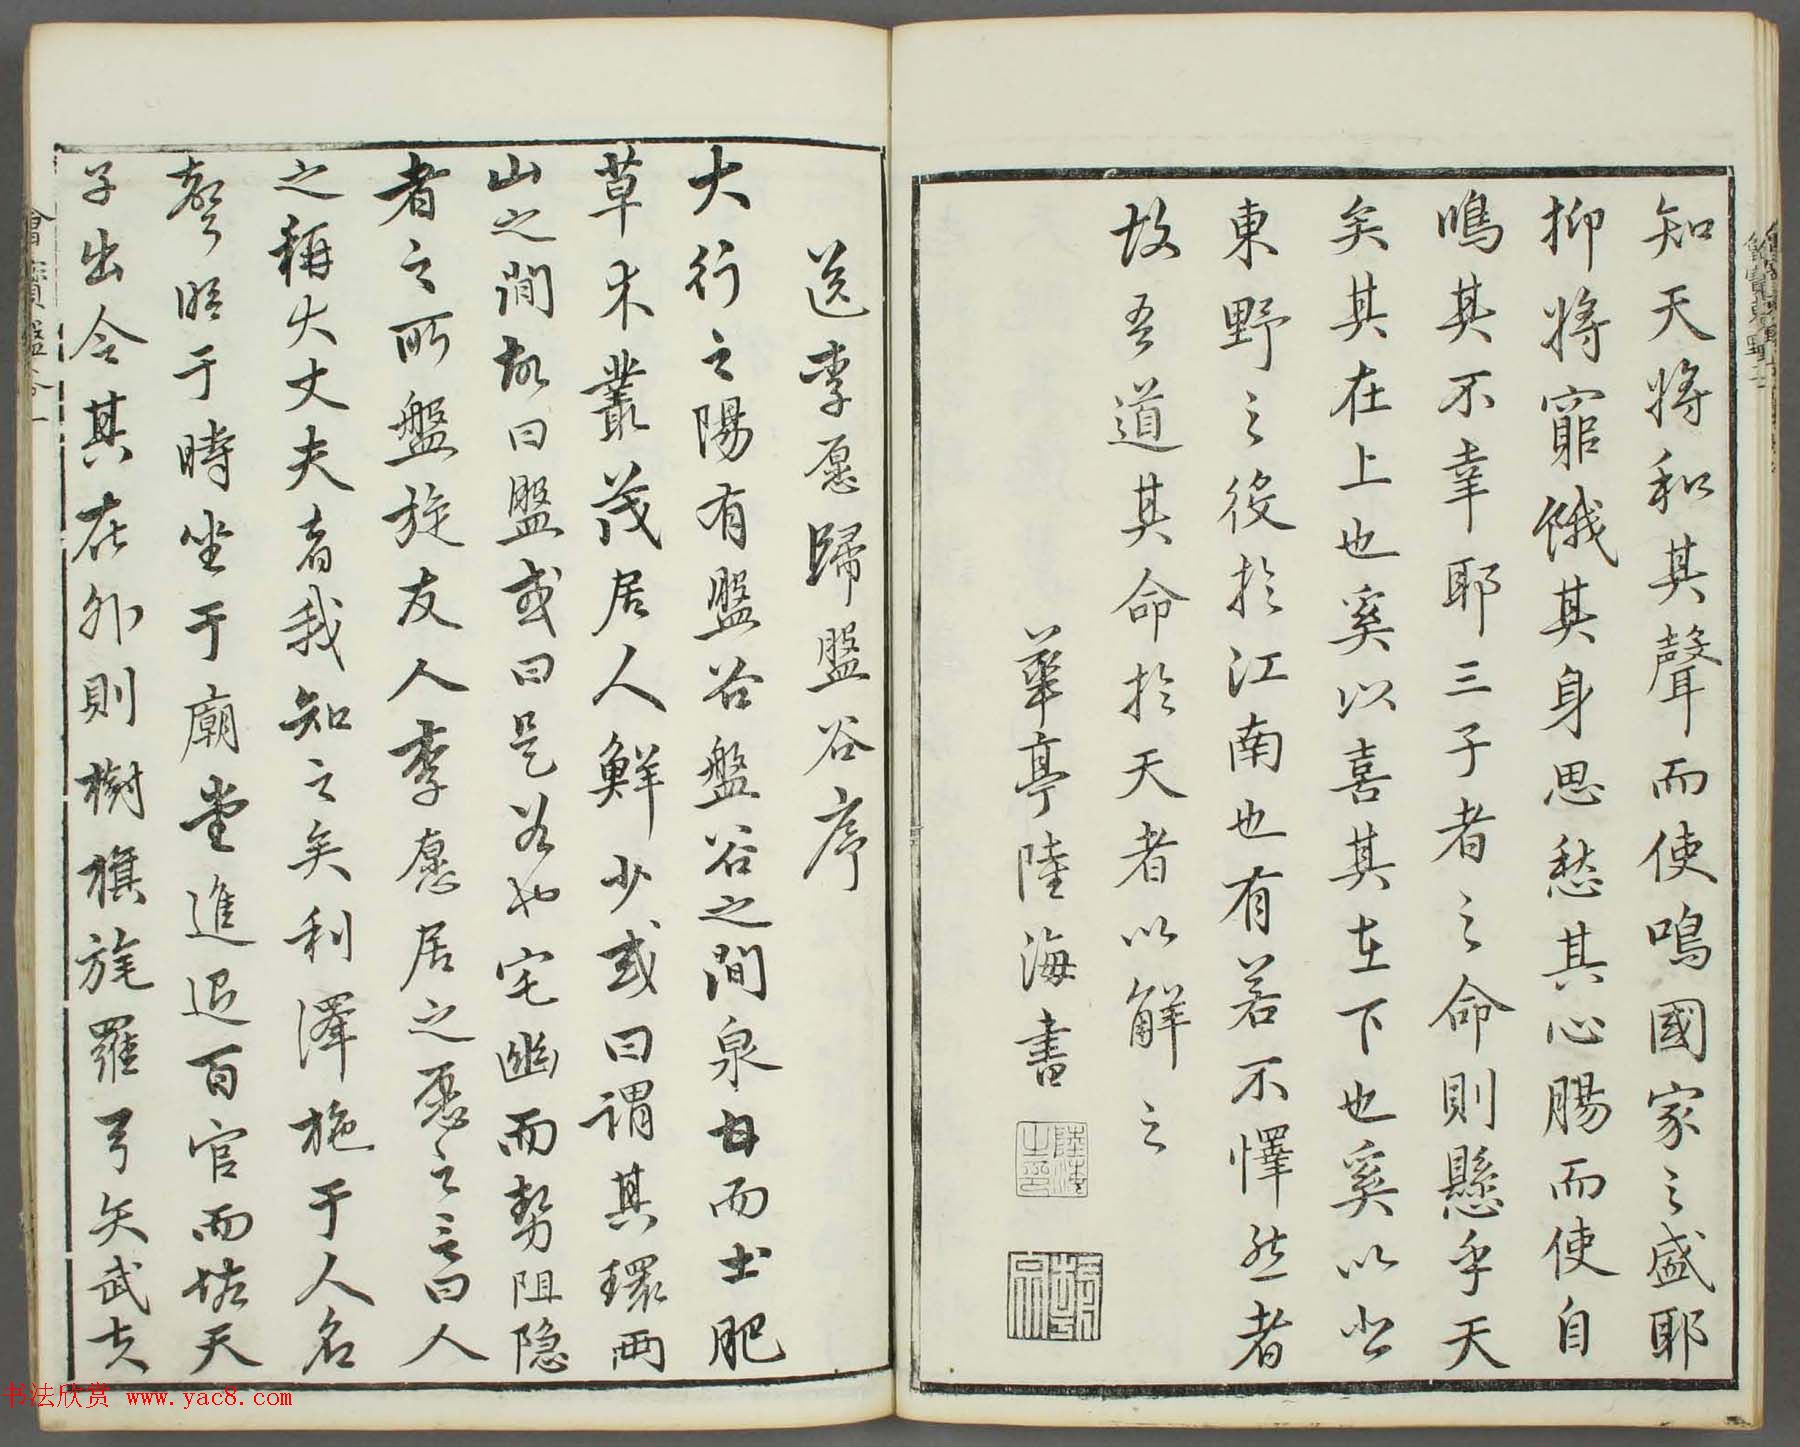 知天將和其聲而使鳴國家之盛耶
抑將窮餓其身思愁其心腸而使自
鳴其不幸耶三子者之命則懸乎天
矣其在上也奚以喜其在下也奚以悲
東野之役於江南也有若不懌然者
故吾道其命於天者以解之
華亭陸海書
送李愿歸盤谷序
大行之陽有盤谷盤谷之間泉甘而土肥
草木叢茂居人鮮少或曰謂其環兩
山之間故曰盤或曰是谷也宅幽而勢阻隐
者之所盤旋友人李愿居之愿之言曰人
之稱大丈夫者我知之矣利澤施于人名
聲昭于時坐于廟堂進退百官而佐天
子出令其在外則樹旗旄羅弓矢武夫
书法欣赏 www.yac8.com